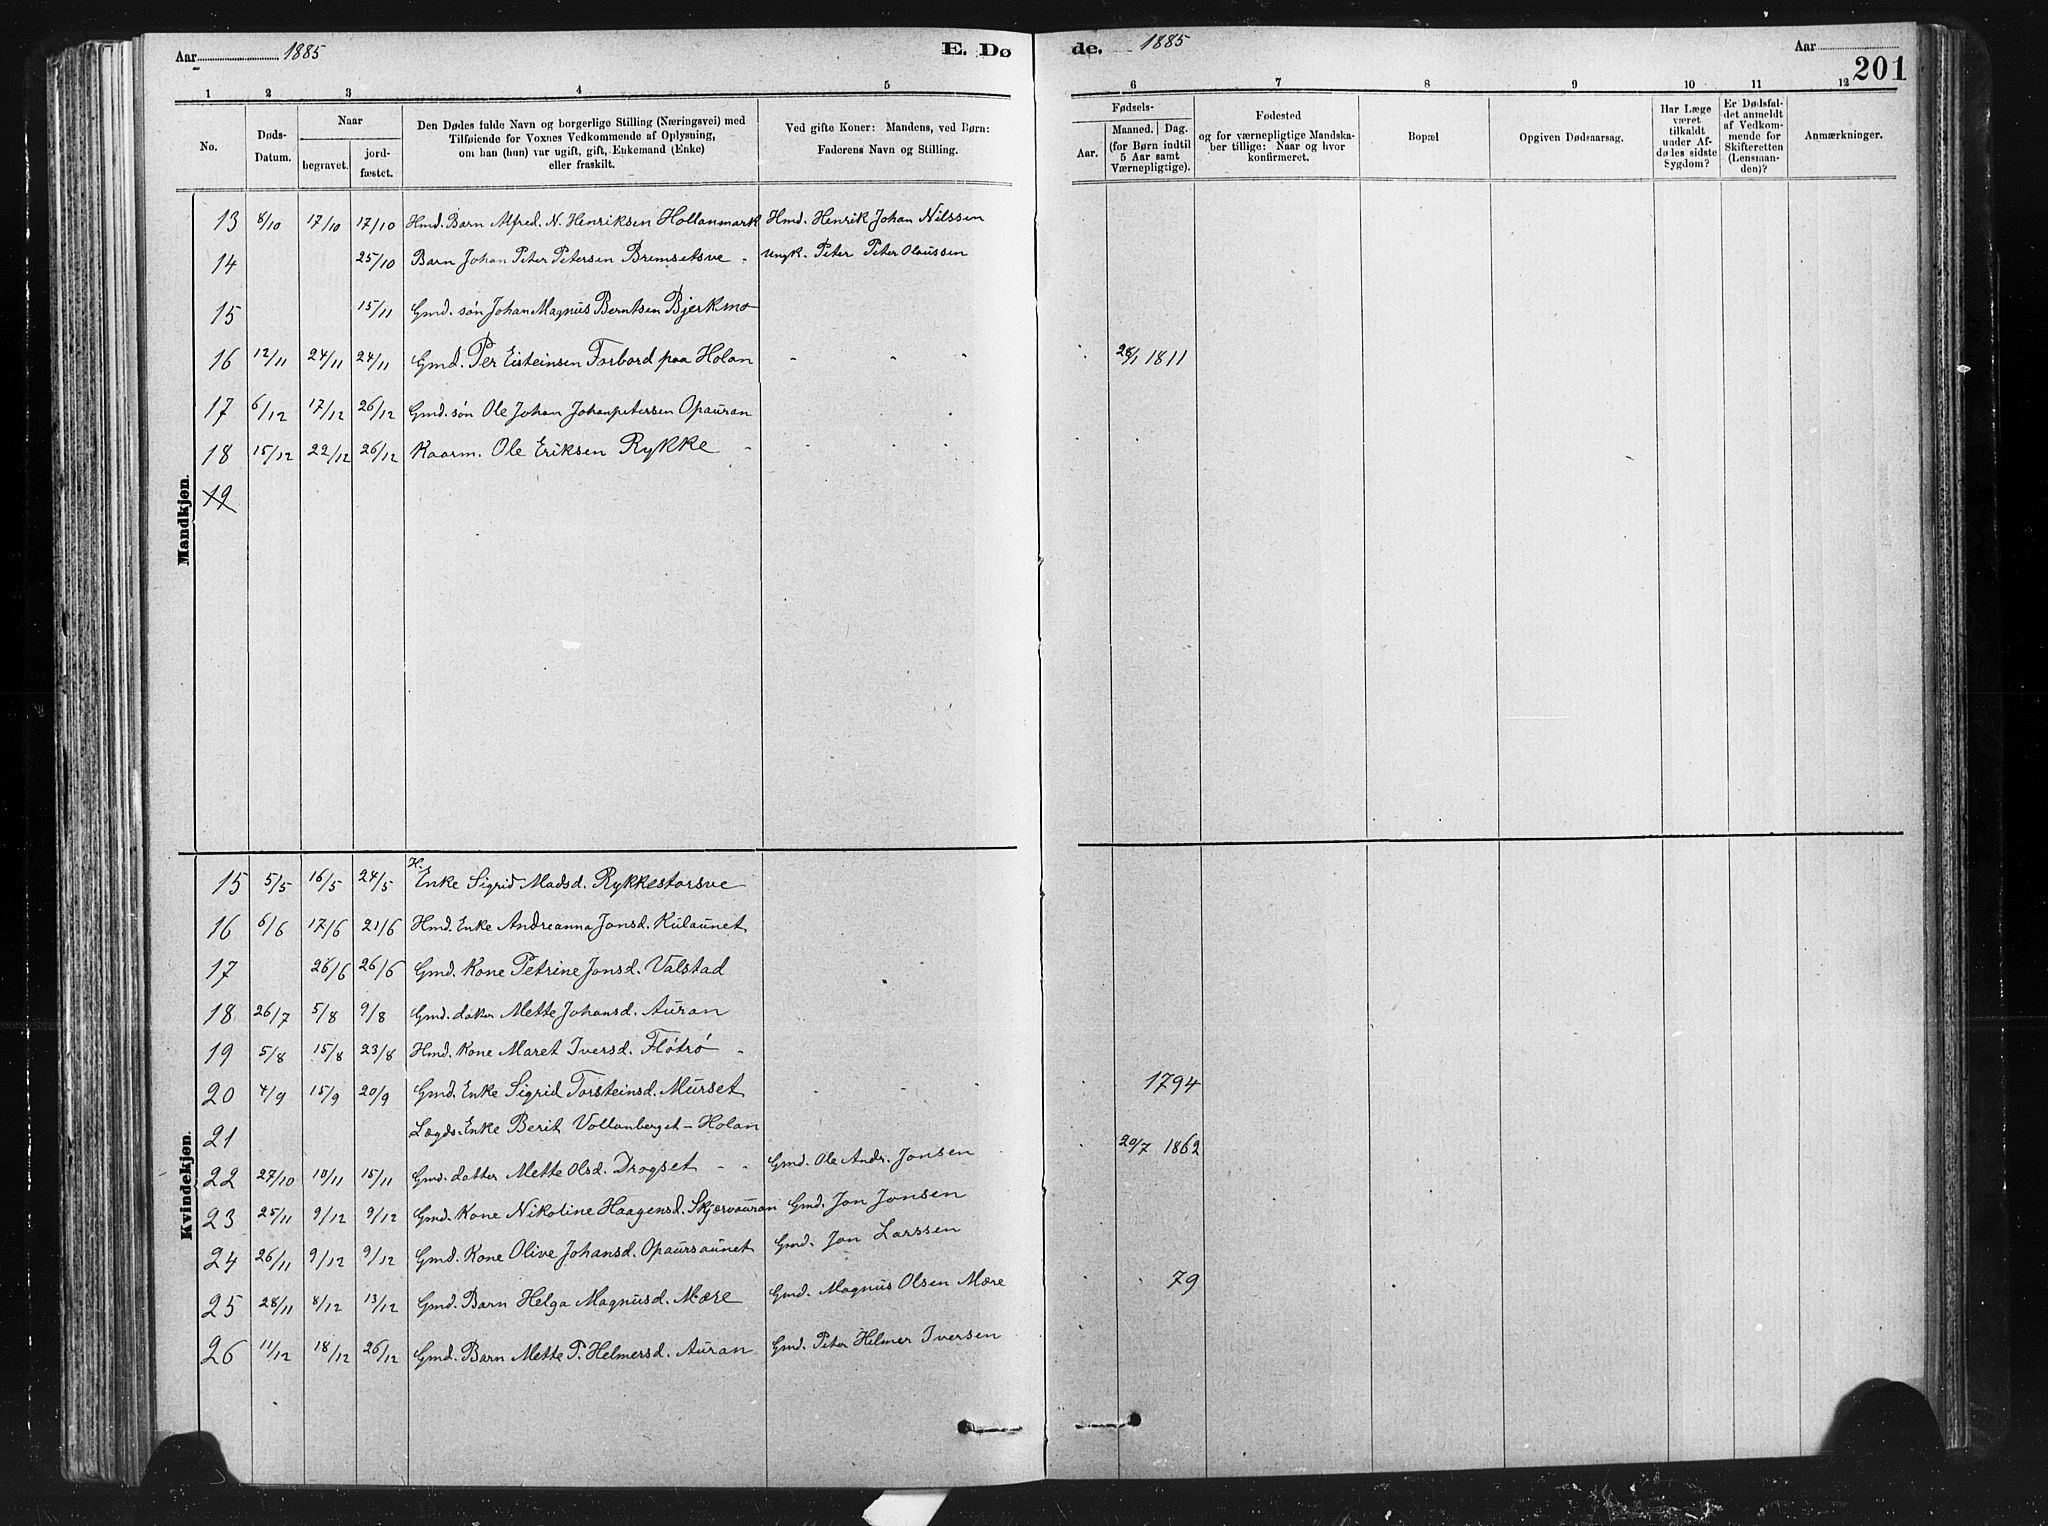 Aar 1885 E. Dø de. 1885 Aar 201
1 2 3 4 5 6 7 8 9 10 11 12
No.
Døds-Datum.
Naar
begravet.
jord-fæstet.
Den Dødes fulde Navn og borgerlige Stilling (Næringsvei) med
Tilføiende for Voxnes Vedkommende af Oplysning,
om han (hun) var ugift, gift, Enkemand (Enke)
eller fraskilt.
Ved gifte Koner: Mandens, ved Børn:
Faderens Navn og Stilling.
Fødsels-
Aar.
Maaned. Dag.
(for Børn indtil
5 Aar samt
Værnepligtige).
Fødested
og for værnepligtige Mandska-
ber tillige: Naar og hvor
konfirmeret.
Bopæl
Opgiven Dødsaarsag.
Har Læge
været
tilkaldt
under Af-
dødes sidste
Sygdom?
Er Dødsfal-
det anmeldt
af Vedkom-
mende for
Skifteretten
(Lensman-
den)?
Anmærkninger.
Mandkjøn.
13 8/10 17/10 17/10 Hmd. Barn Alfred. N. Henriksen Hollanmark Hmd. Henrik Johan Nilssen
14 25/10 Barn Johan Peter Petersen Bremsetsve - Ungk. Peter Peter Olaussen
15 15/11 Gmd. søn Johan Magnus Berntsen Bjerkmo
16 12/11 24/11 24/11 Gmd. Per Eisteinsen Forbord paa Holan 28/1 1811
17 6/12 17/12 26/12 Gmd. søn Ole Johan Johanpetersen Opauran
18 15/12 22/12 26/12 Kaarm. Ole Eriksen Rykke -
19
Kvindekjøn.
15 5/5 16/5 24/5 H. Enke Sigrid Madsd. Rykkestorsve
16 6/6 17/6 21/6 Hmd. Enke Andreanna Jonsd. Kulaunet
17 26/6 26/6 Gmd. Kone Petrine Jonsd. Valstad
18 26/7 5/8 9/8 Gmd. datter Mette Johansd. Auran
19 5/8 15/8 23/8 Hmd. Kone Maret Iversd. Flötrö -
20 4/9 15/9 20/9 Gmd. Enke Sigrid Torsteinsd. Murset 1794
21 Lægds-Enke Berit Vollanberget - Holan
22 27/10 10/11 15/11 Gmd. datter Mette Olsd. Drogset - - Gmd. Ole Andr. Jonsen 20/7 1862
23 25/11 9/12 9/12 Gmd. Kone Nikoline Haagensd. Skjervauran Gmd. Jon Jonsen
24 26/11 9/12 9/12 Gmd. Kone Olive Johansd. Opaursaunet Gmd. Jon Larssen
25 28/11 8/12 13/12 Gmd. Barn Helga Magnusd. Mære Gmd. Magnus Olsen Mære 79
26 11/12 18/12 26/12 Gmd. Barn Mette P. Helmersd. Auran Gmd. Peter Helmer Iversen